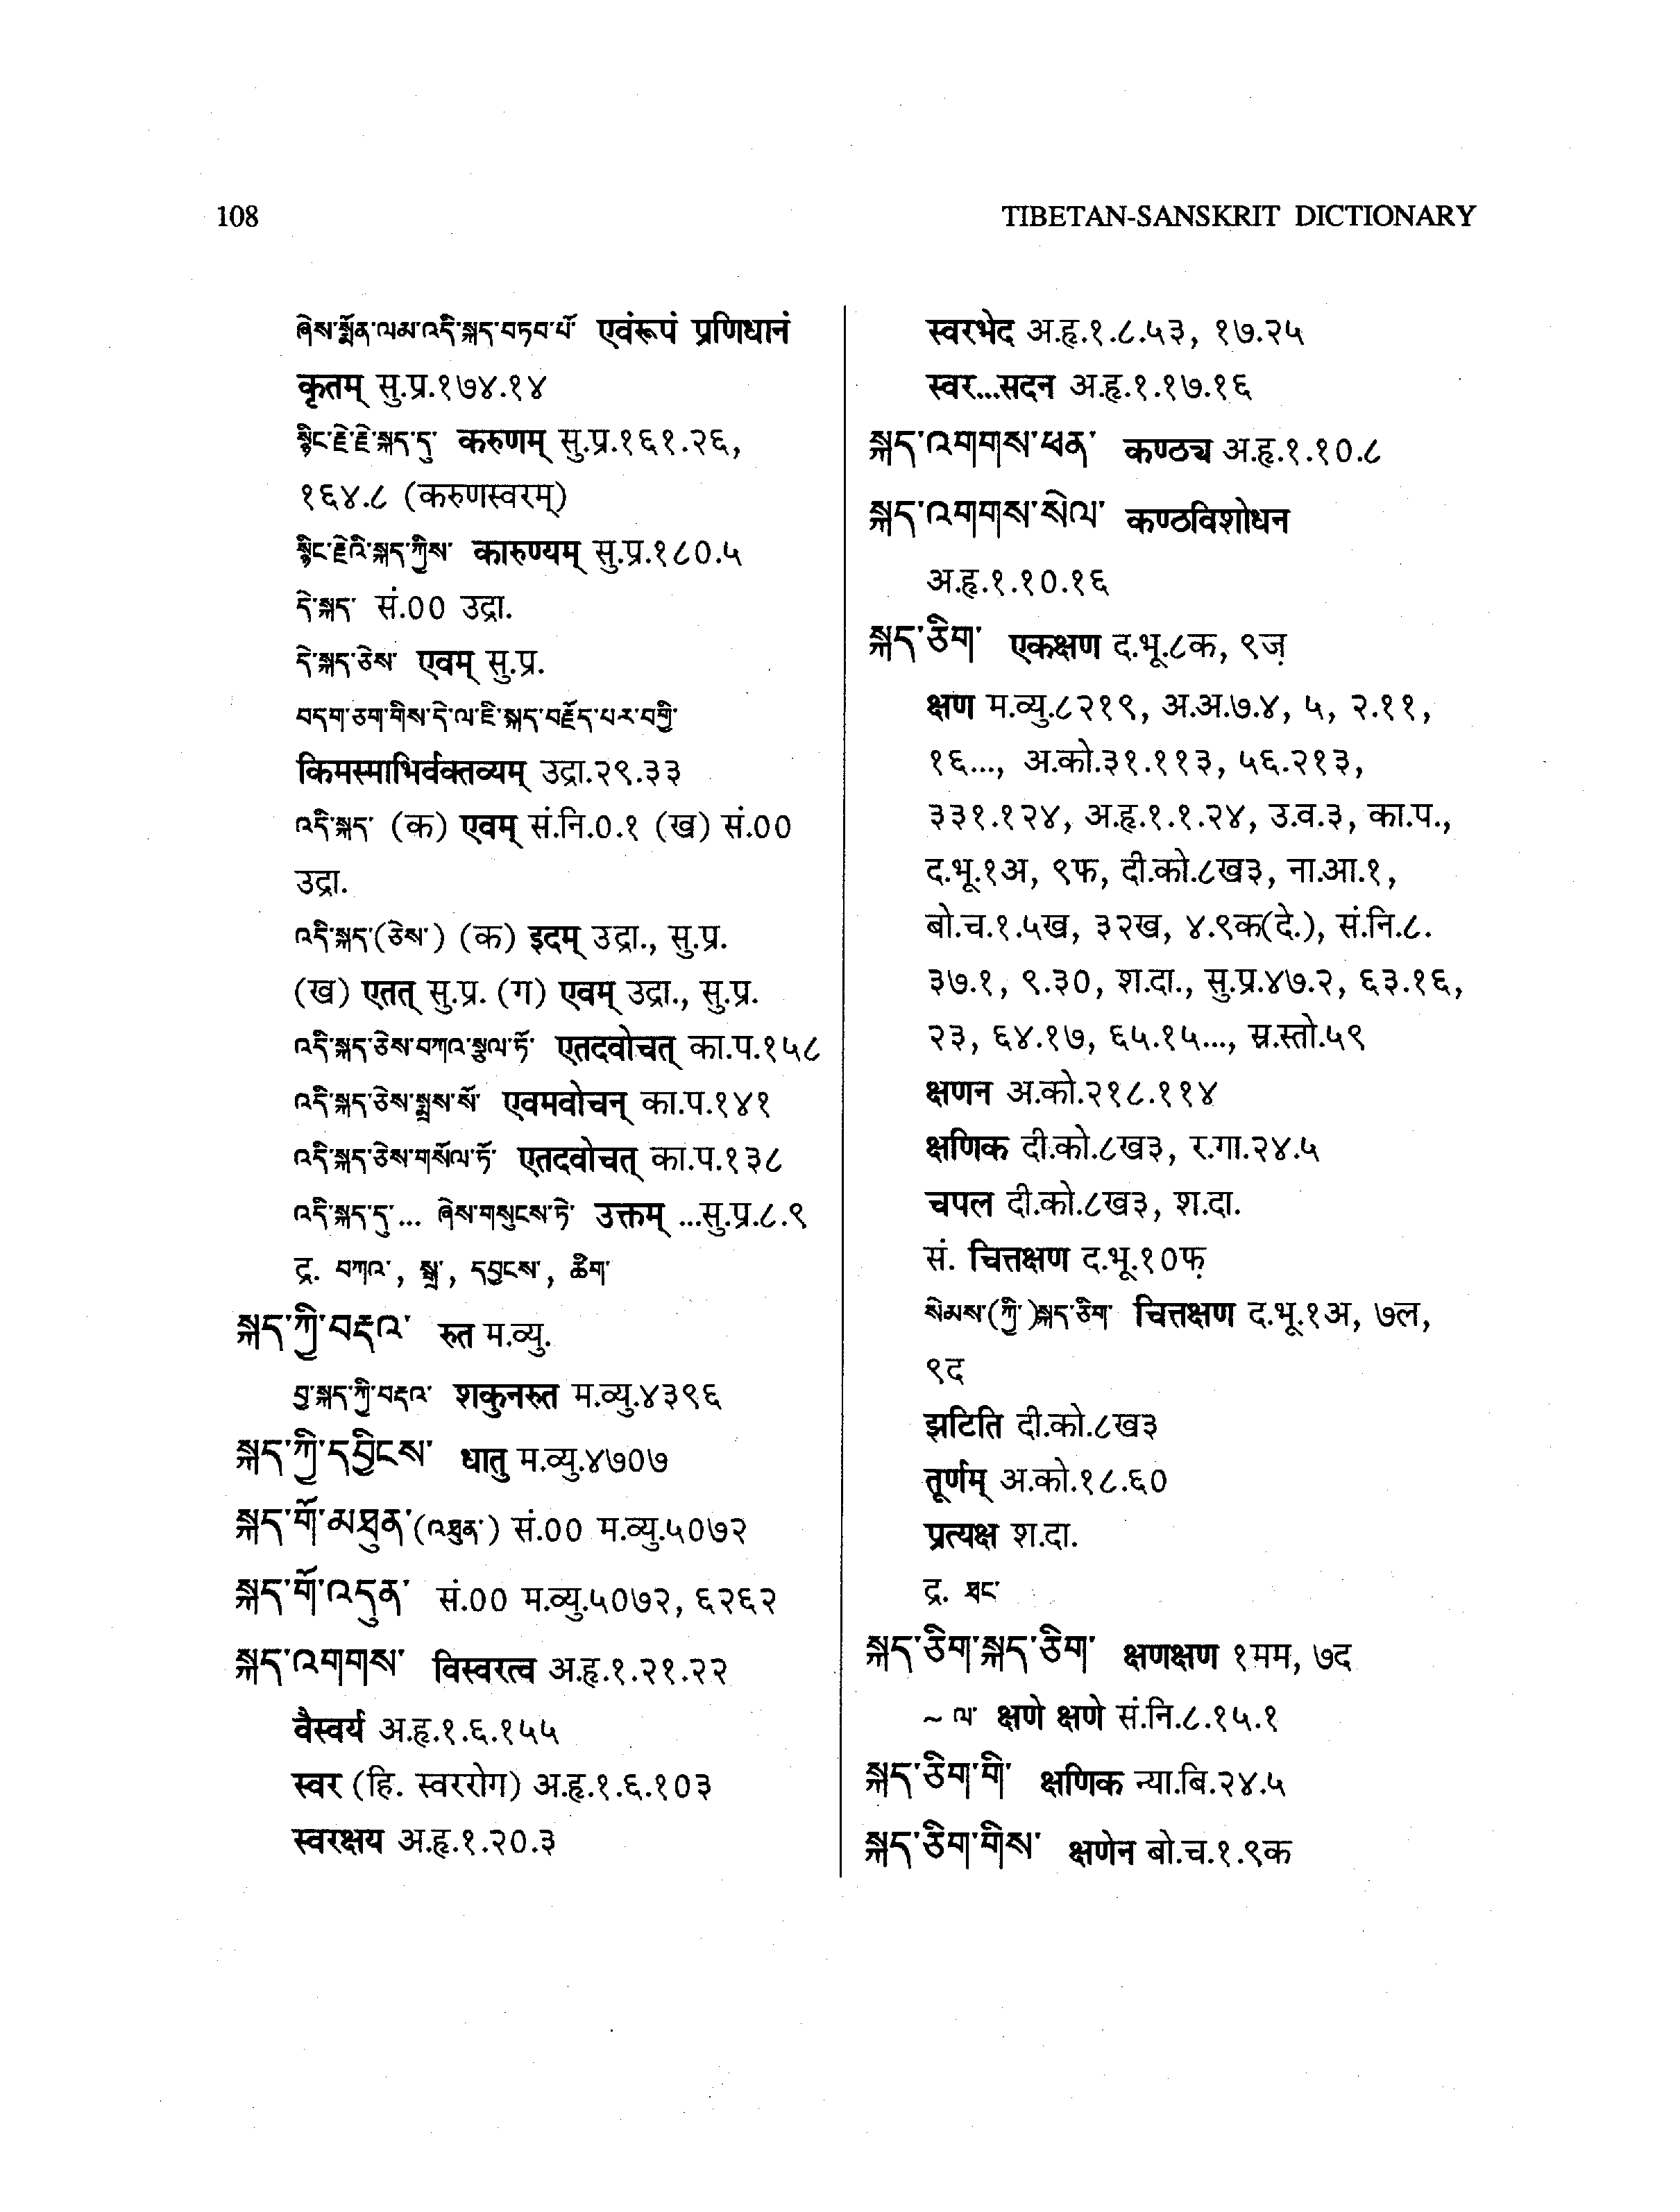 108
TIBETAN-SANSKRIT DICTIONARY
ཞེས་སྨོན་ལམ་འདི་སྐད་བཏབ་པོ་ एवंरूपं प्रणिधानं
कृतम् सु.प्र.१७४.१४
སྙིང་རྗེ་རྗེ་སྐད་དུ་ करुणम् सु.प्र.१६१.२६,
१६४.८ (करुणस्वरम्)
སྙིང་རྗེའི་སྐད་ཀྱིས་ कारुण्यम् सु.प्र.१८०.५
དེ་སྐད་ सं.०० उद्रा.
དེ་སྐད་ཅེས་ एवम् सु.प्र.
བདག་ཅག་གིས་དེ་ལ་ཇི་སྐད་བརྗོད་པར་བགྱི་
किमस्माभिर्वक्तव्यम् उद्रा.२९.३३
འདི་སྐད་ (क) एवम् सं.नि.०.१ (ख) सं.००
उद्रा.
འདི་སྐད་(ཅེས་) (क) इदम् उद्रा., सु.प्र.
(ख) एतत् सु.प्र. (ग) एवम् उद्रा., सु.प्र.
འདི་སྐད་ཅེས་བཀའ་སྩལ་ཏོ་ एतदवोचत् का.प.१५८
འདི་སྐད་ཅེས་སྨྲས་སོ་ एवमवोचन् का.प.१४१
འདི་སྐད་ཅེས་གསོལ་ཏོ་ एतदवोचत् का.प.१३८
འདི་སྐད་དུ་... ཞེས་གསུངས་ཏེ་ उक्तम् ...सु.प्र.८.९
द्र. བཀའ་, སྒྲ་, དབྱངས་, ཚིག་
སྐད་ཀྱི་བརྡའ་ रुत म.व्यु.
བྱ་སྐད་ཀྱི་བརྡའ་ शकुनरुत म.व्यु.४३९६
སྐད་ཀྱི་དབྱིངས་ धातु म.व्यु.४७०७
སྐད་གོ་མཐུན་(འཐུན་) सं.०० म.व्यु.५०७२
སྐད་གོ་འདུན་ सं.०० म.व्यु.५०७२, ६२६२
སྐད་འགགས་ विस्वरत्व अ.हृ.१.२१.२२
वैस्वर्य अ.हृ.१.६.१५५
स्वर (हि. स्वररोग) अ.हृ.१.६.१०३
स्वरक्षय अ.हृ.१.२०.३
स्वरभेद अ.हृ.१.८.५३, १७.२५
स्वर...सदन अ.हृ.१.१७.१६
སྐད་འགགས་ཕན་ कण्ठ्य अ.हृ.१.१०.८
སྐད་འགགས་སེལ་ कण्ठविशोधन
अ.हृ.१.१०.१६
སྐད་ཅིག་ एकक्षण द.भू.८क, ९ज़
क्षण म.व्यु.८२१९, अ.अ.७.४, ५, २.११,
१६..., अ.को.३१.११३, ५६.२१३,
३३१.१२४, अ.हृ.१.१.२४, उ.व.३, का.प.,
द.भू.१अ, ९फ, दी.को.८ख३, ना.आ.१,
बो.च.१.५ख, ३२ख, ४.९क(दे.), सं.नि.८.
३७.१, ९.३०, श.दा., सु.प्र.४७.२, ६३.१६,
२३, ६४.१७, ६५.१५..., स्र.स्तो.५९
क्षणन अ.को.२१८.११४
क्षणिक दी.को.८ख३, र.गा.२४.५
चपल दी.को.८ख३, श.दा.
सं. चित्तक्षण द.भू.१०फ़
སེམས་(ཀྱི་)སྐད་ཅིག་ चित्तक्षण द.भू.१अ, ७ल,
९द
झटिति दी.को.८ख३
तूर्णम् अ.को.१८.६०
प्रत्यक्ष श.दा.
द्र. ཐང་
སྐད་ཅིག་སྐད་ཅིག་ क्षणक्षण १मम, ७द
~ ལ་ क्षणे क्षणे सं.नि.८.१५.१
སྐད་ཅིག་གི་ क्षणिक न्या.बि.२४.५
སྐད་ཅིག་གིས་ क्षणेन बो.च.१.९क